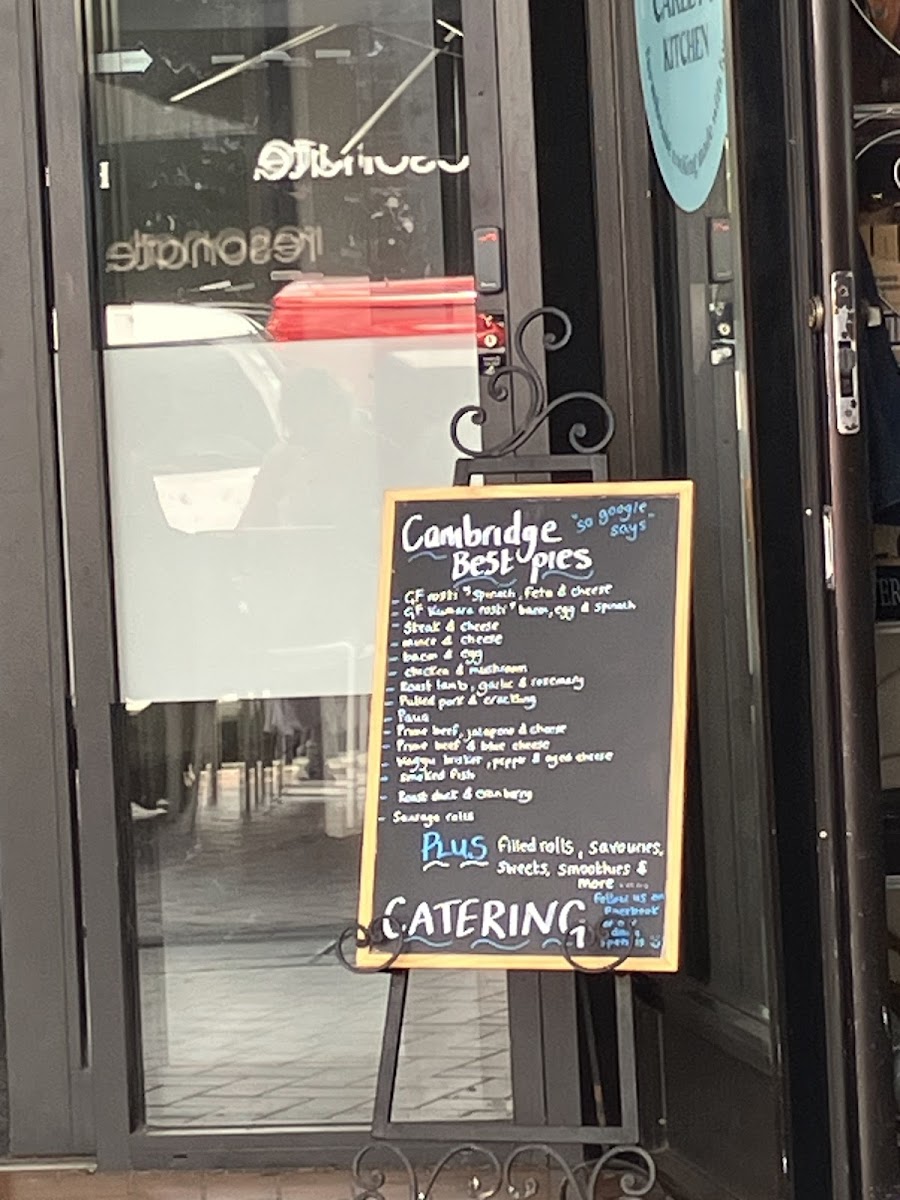 KITCHEN
resonate
Cambridge
"so google says"
Best pies
- GF rosti w spinach, feta & cheese
- GF Kumara rosti w bacon, egg & spinach
- Steak & cheese
- mince & cheese
- bacon & egg
- chicken & mushroom
- Roast lamb, garlic & rosemary
- Pulled pork & crackling
- Paua
- Prime beef, jalapeno & cheese
- Prime beef & blue cheese
- Wagyu brisket, pepper & aged cheese
- smoked fish
- Roast duck & cranberry
- Sausage rolls
PLUS filled rolls, savouries,
sweets, smoothies &
more ....
CATERING
Follow us on